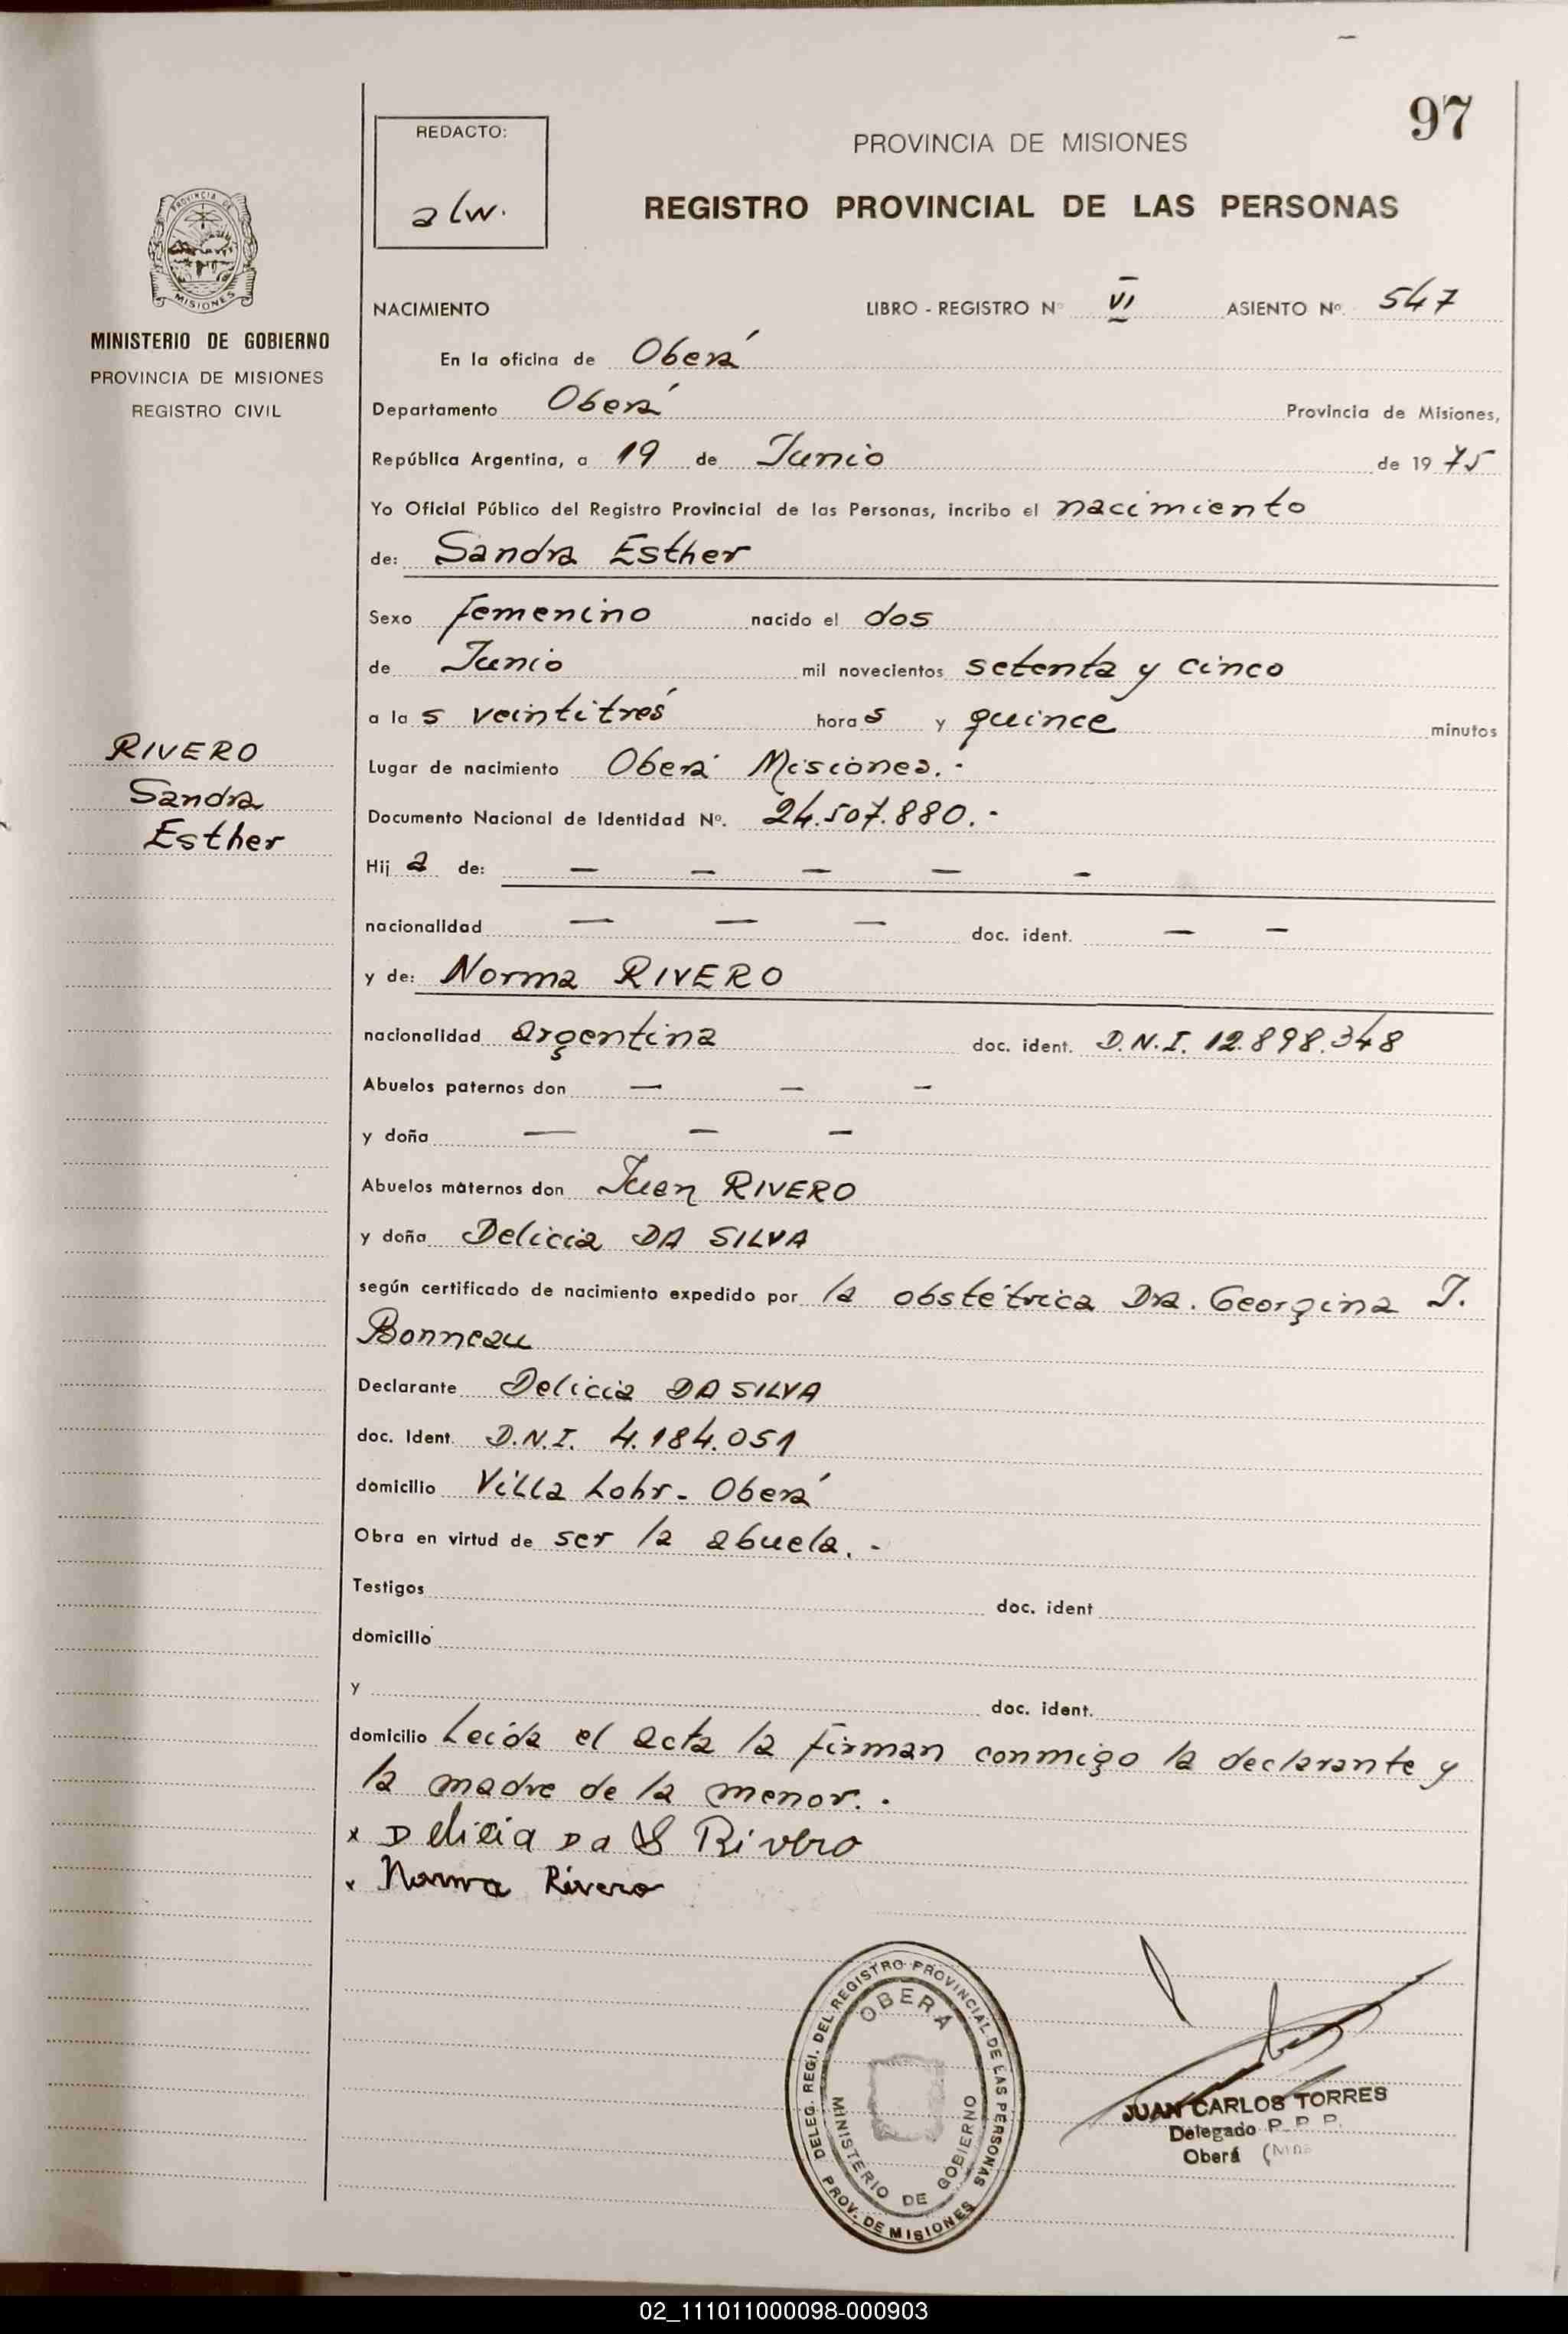 97
REDACTO:
alw.
PROVINCIA DE MISIONES
REGISTRO PROVINCIAL DE LAS PERSONAS
PROVINCIA DE
MISIONES
MINISTERIO DE GOBIERNO
PROVINCIA DE MISIONES
REGISTRO CIVIL
NACIMIENTO LIBRO - REGISTRO Nº VI ASIENTO Nº. 547
En la oficina de Oberá
Departamento Oberá Provincia de Misiones,
República Argentina, a 19 de Junio de 1975
Yo Oficial Público del Registro Provincial de las Personas, incribo el nacimiento
de: Sandra Esther
Sexo femenino nacido el dos
de Junio mil novecientos setenta y cinco
a la s veintitrés hora s y quince minutos
RIVERO
Sandra
Esther
Lugar de nacimiento Oberá Misiones.-
Documento Nacional de Identidad Nº. 24.507.880.-
Hij a de: — — — — —
nacionalidad — — — doc. ident. — —
y de: Norma RIVERO
nacionalidad argentina doc. ident. D.N.I. 12.898.348
Abuelos paternos don — — —
y doña — — —
Abuelos maternos don Juan RIVERO
y doña Delicia DA SILVA
según certificado de nacimiento expedido por la obstétrica Dra. Georgina J.
Bonneau
Declarante Delicia DA SILVA
doc. Ident. D.N.I. 4.184.051
domicilio Villa Lohr - Oberá
Obra en virtud de ser la abuela.-
Testigos doc. ident
domicilio
y doc. ident.
domicilio Leída el acta la firman conmigo la declarante y
la madre de la menor. .
x Delicia Da S Rivero
x Norma Rivero
DELEG. REGI. DEL REGISTRO PROVINCIAL DE LAS PERSONAS
PROV. DE MISIONES
OBERA
MINISTERIO DE GOBIERNO
JUAN CARLOS TORRES
Delegado
Oberá
02_111011000098-000903